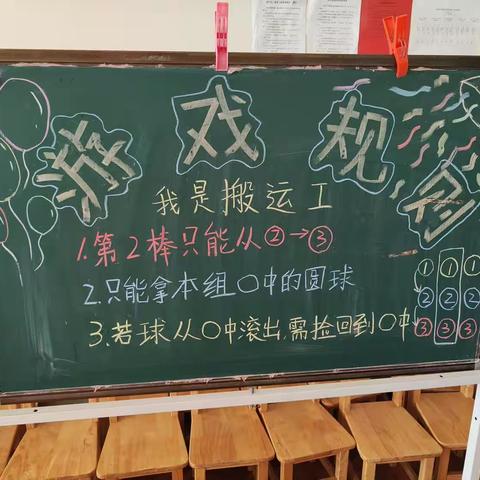 游戏规则
我是搬运工
1.第2棒只能从②→③
2.只能拿本组〇中的圆球
3.若球从〇中滚出,需捡回到〇中
①①①
②②②
③③③